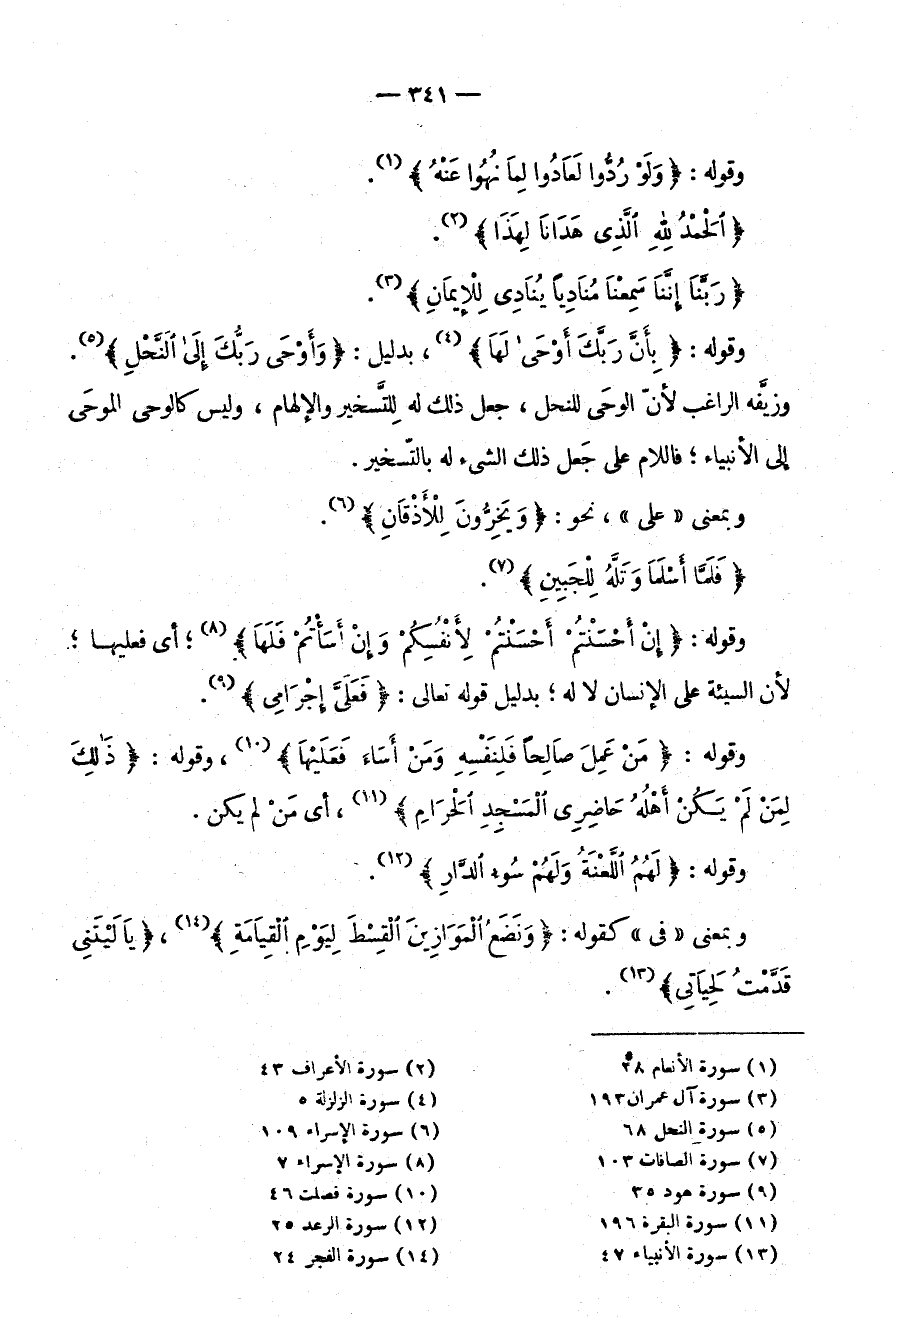 — ٣٤١ —
وقوله : ﴿ وَلَوْ رُدُّوا لَعَادُوا لِمَا نُهُوا عَنْهُ ﴾ (١) .
﴿ ٱلْحَمْدُ لِلهِ ٱلَّذِى هَدَانَا لِهَذَا ﴾ (٢) .
﴿ رَبَّنَا إِنَّنَا سَمِعْنَا مُنَادِياً يُنَادِى لِلْإِيمَانِ ﴾ (٣) .
وقوله : ﴿ بِأَنَّ رَبَّكَ أَوْحَىٰ لَهَا ﴾ (٤) ، بدليل : ﴿ وَأَوْحَى رَبُّكَ إِلَىٰ ٱلنَّحْلِ ﴾ (٥) .
وزيَّفه الراغب لأنّ الوحَى للنحل ، جعل ذلك له لِلتَّسخير والإلهام ، وليس كالوحى الموحَى
إلى الأنبياء ؛ فاللام على جَعل ذلك الشىء له بالتّسخير .
وبمعنى « على » ، نحو : ﴿ وَيَخِرُّونَ لِلْأَذْقَانِ ﴾ (٦) .
﴿ فَلَمَّا أَسْلَمَا وَتَلَّهُ لِلْجَبِينِ ﴾ (٧) .
وقوله : ﴿ إِنْ أَحْسَنْتُمْ أَحْسَنْتُمْ لِأَنْفُسِكُمْ وَإِنْ أَسَأْتُمْ فَلَهَا ﴾ (٨) ؛ أى فعليها ؛
لأن السيئة على الإنسان لا له ؛ بدليل قوله تعالى : ﴿ فَعَلَىَّ إِجْرَامِى ﴾ (٩) .
وقوله : ﴿ مَنْ عَمِلَ صَالِحاً فَلِنَفْسِهِ وَمَنْ أَسَاءَ فَعَلَيْهَا ﴾ (١٠) ، وقوله : ﴿ ذَٰلِكَ
لِمَنْ لَمْ يَكُنْ أَهْلُهُ حَاضِرِى ٱلْمَسْجِدِ ٱلْحَرَامِ ﴾ (١١) ، أى مَنْ لم يكن .
وقوله : ﴿ لَهُمُ ٱللَّعْنَةُ وَلَهُمْ سُوءُ ٱلدَّارِ ﴾ (١٢) .
وبمعنى « فى » كقوله : ﴿ وَنَضَعُ ٱلْمَوَازِينَ ٱلْقِسْطَ لِيَوْمِ ٱلْقِيَامَةِ ﴾ (١٤) ، ﴿ يَا لَيْتَنِى
قَدَّمْتُ لِحَيَاتِى ﴾ (١٣) .
(١) سورة الأنعام ٢٨
(٢) سورة الأعراف ٤٣
(٣) سورة آل عمران ١٩٣
(٤) سورة الزلزلة ٥
(٥) سورة النحل ٦٨
(٦) سورة الإسراء ١٠٩
(٧) سورة الصافات ١٠٣
(٨) سورة الإسراء ٧
(٩) سورة هود ٣٥
(١٠) سورة فصلت ٤٦
(١١) سورة البقرة ١٩٦
(١٢) سورة الرعد ٢٥
(١٣) سورة الأنبياء ٤٧
(١٤) سورة الفجر ٢٤